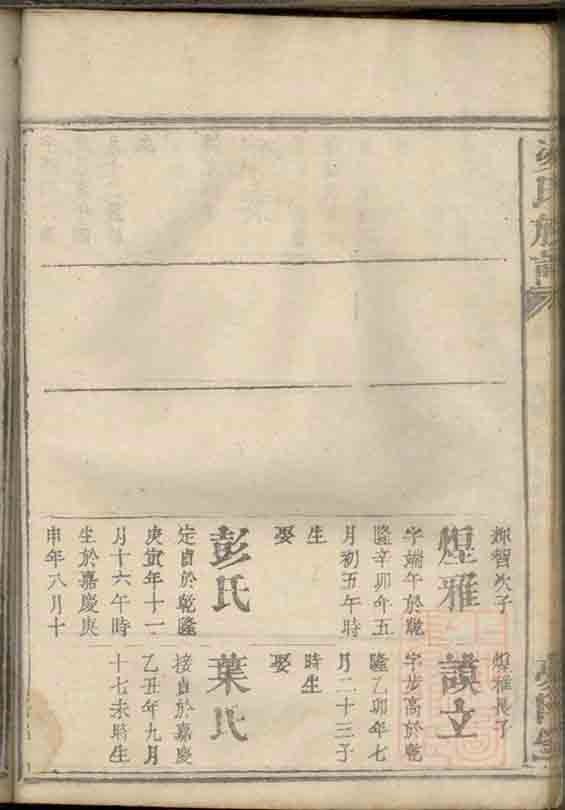 氏族譜
輝智次子
煌雅
字端午於乾
隆辛卯年五
月初五午時
生
娶
彭氏
定貞於乾隆
庚寅年十一
月十六午時
生於嘉慶庚
申年八月十
煌雅長子
謨立
字步高於乾
隆乙卯年七
月二十三子
時生
娶
葉氏
接貞於嘉慶
乙丑年九月
十七未時生